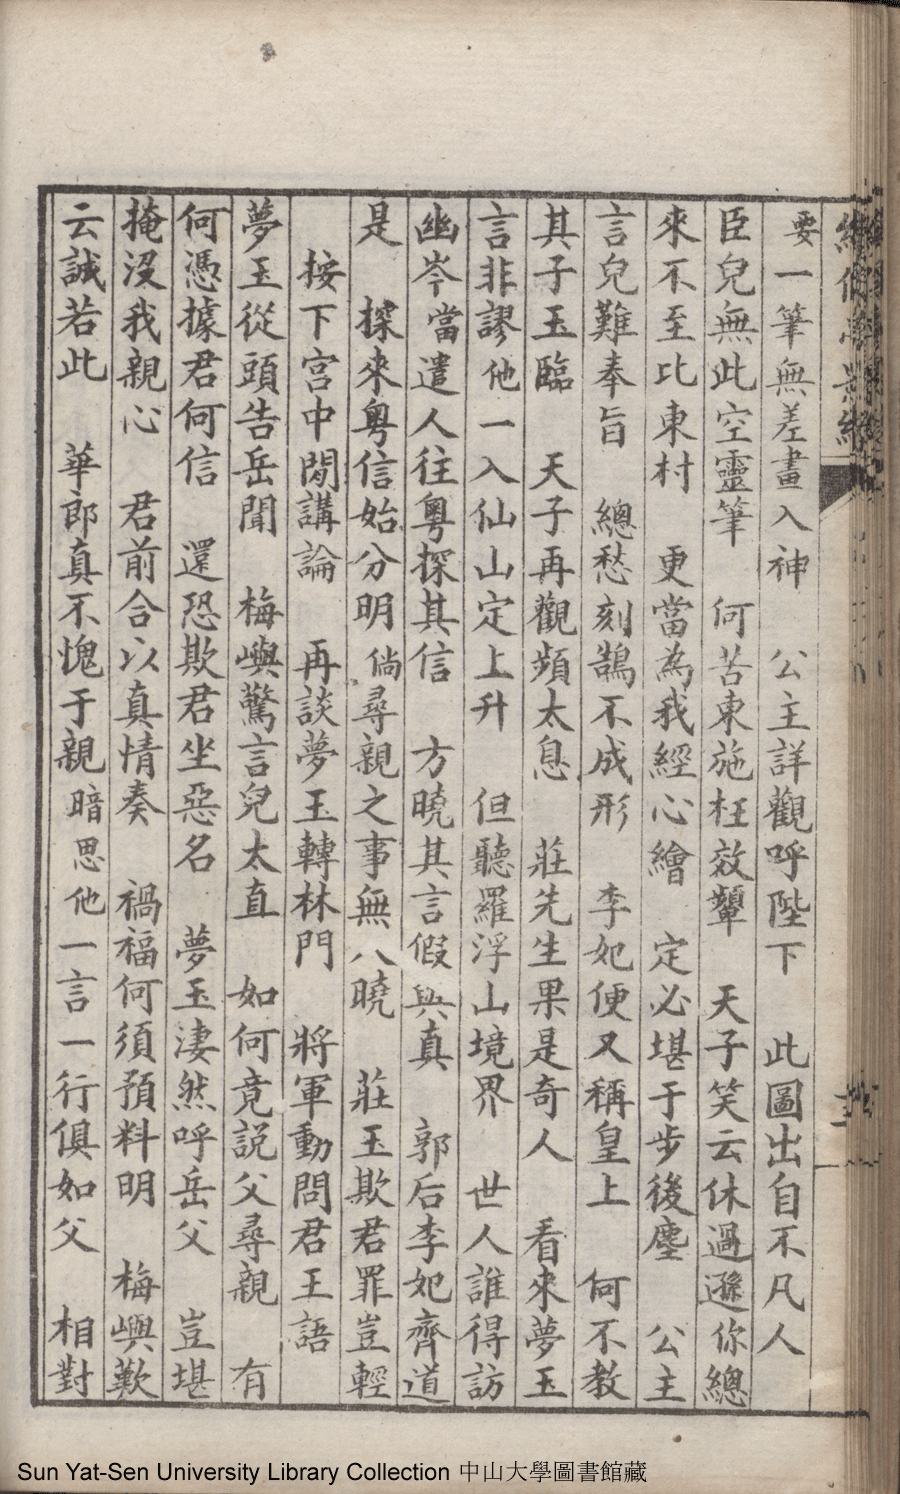 要一筆無差畫入神　公主詳觀呼陛下　此圖出自不凡人
臣兒無此空靈筆　何苦東施枉效顰　天子笑云休過遜你總
來不至比東村　更當為我經心繪　定必堪于步後塵　公主
言兒難奉旨　總愁刻鵠不成形　李妃便又稱皇上　何不教
其子玉臨　天子再觀頻太息　莊先生果是奇人　看來夢玉
言非謬他一入仙山定上升　但聽羅浮山境界　世人誰得訪
幽岑當遣人往粵探其信　方曉其言假與真　郭后李妃齊道
是　探來粵信始分明倘尋親之事無人曉　莊玉欺君罪豈輕
按下宮中閑講論　再談夢玉轉林門　將軍動問君王語
夢玉從頭告岳聞　梅嶼驚言兒太直　如何竟說父尋親　有
何憑據君何信　還恐欺君坐惡名　夢玉淒然呼岳父　豈堪
掩沒我親心　君前合以真情奏　禍福何須預料明　梅嶼歎
云誠若此　華郎真不愧于親暗思他一言一行俱如父　相對
Sun Yat-Sen University Library Collection 中山大學圖書館藏